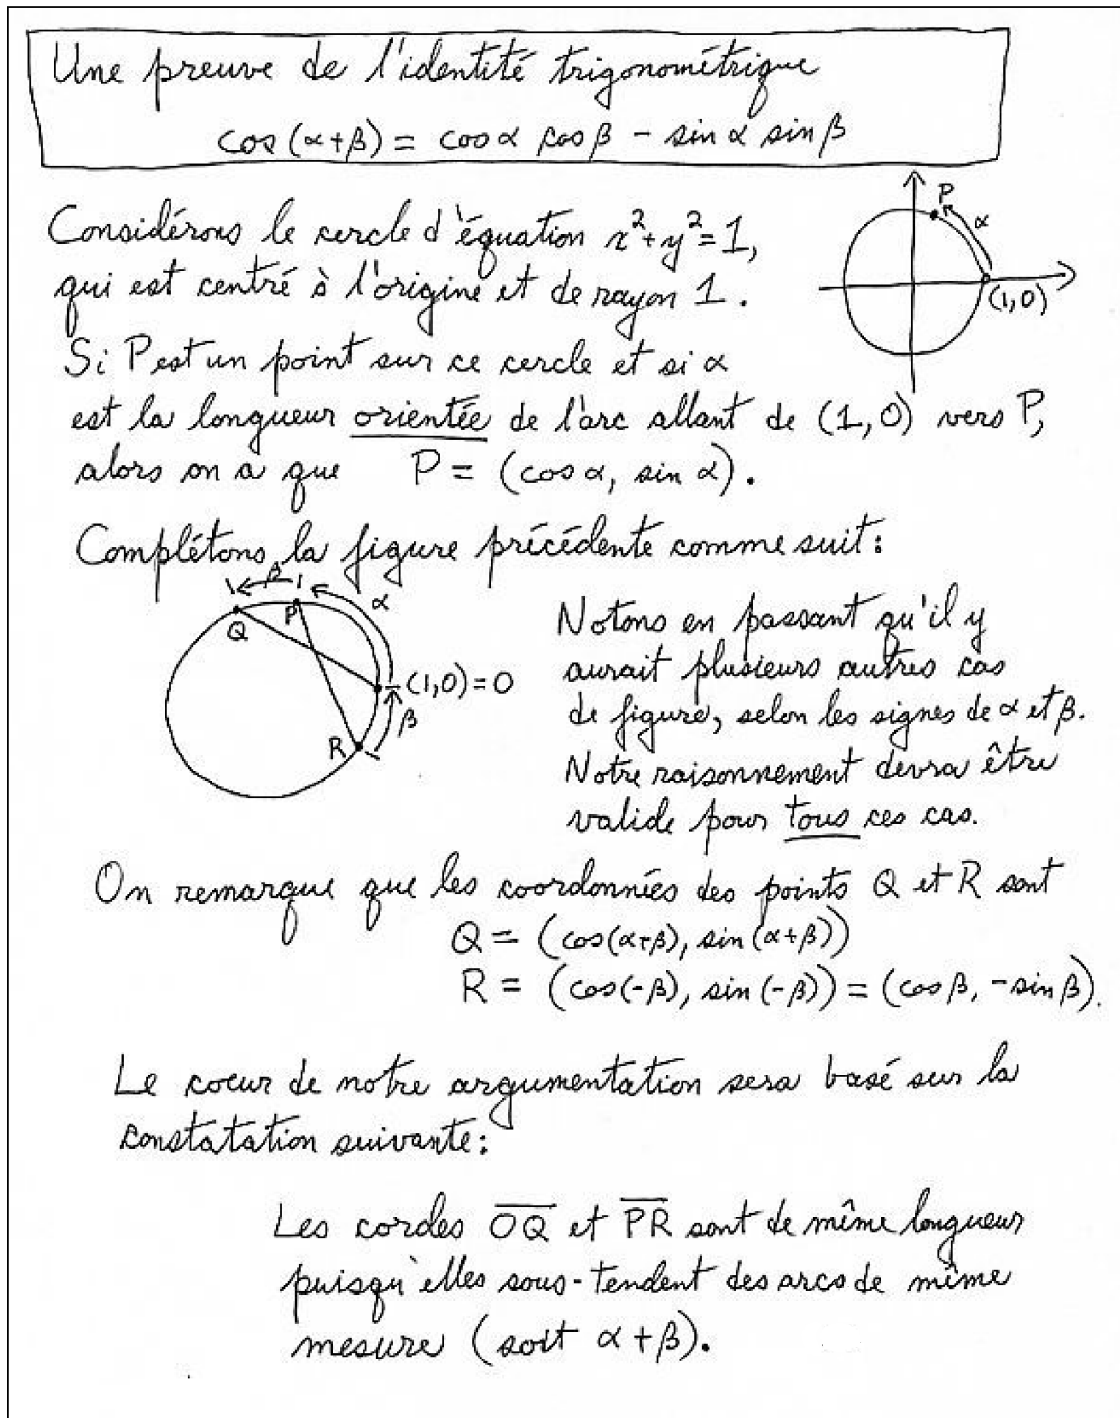 Une preuve de l'identité trigonométrique
cos (α+β) = cos α cos β - sin α sin β
Considérons le cercle d'équation x²+y²=1,
qui est centré à l'origine et de rayon 1.
P
α
(1,0)
Si P est un point sur ce cercle et si α
est la longueur orientée de l'arc allant de (1,0) vers P,
alors on a que P = (cos α, sin α).
Complétons la figure précédente comme suit:
β
α
Q
P
(1,0)=O
β
R
Notons en passant qu'il y
aurait plusieurs autres cas
de figure, selon les signes de α et β.
Notre raisonnement devra être
valide pour tous ces cas.
On remarque que les coordonnées des points Q et R sont
Q = (cos(α+β), sin(α+β))
R = (cos(-β), sin(-β)) = (cos β, -sin β).
Le coeur de notre argumentation sera basé sur la
constatation suivante:
Les cordes OQ et PR sont de même longueur
puisqu'elles sous-tendent des arcs de même
mesure (soit α+β).